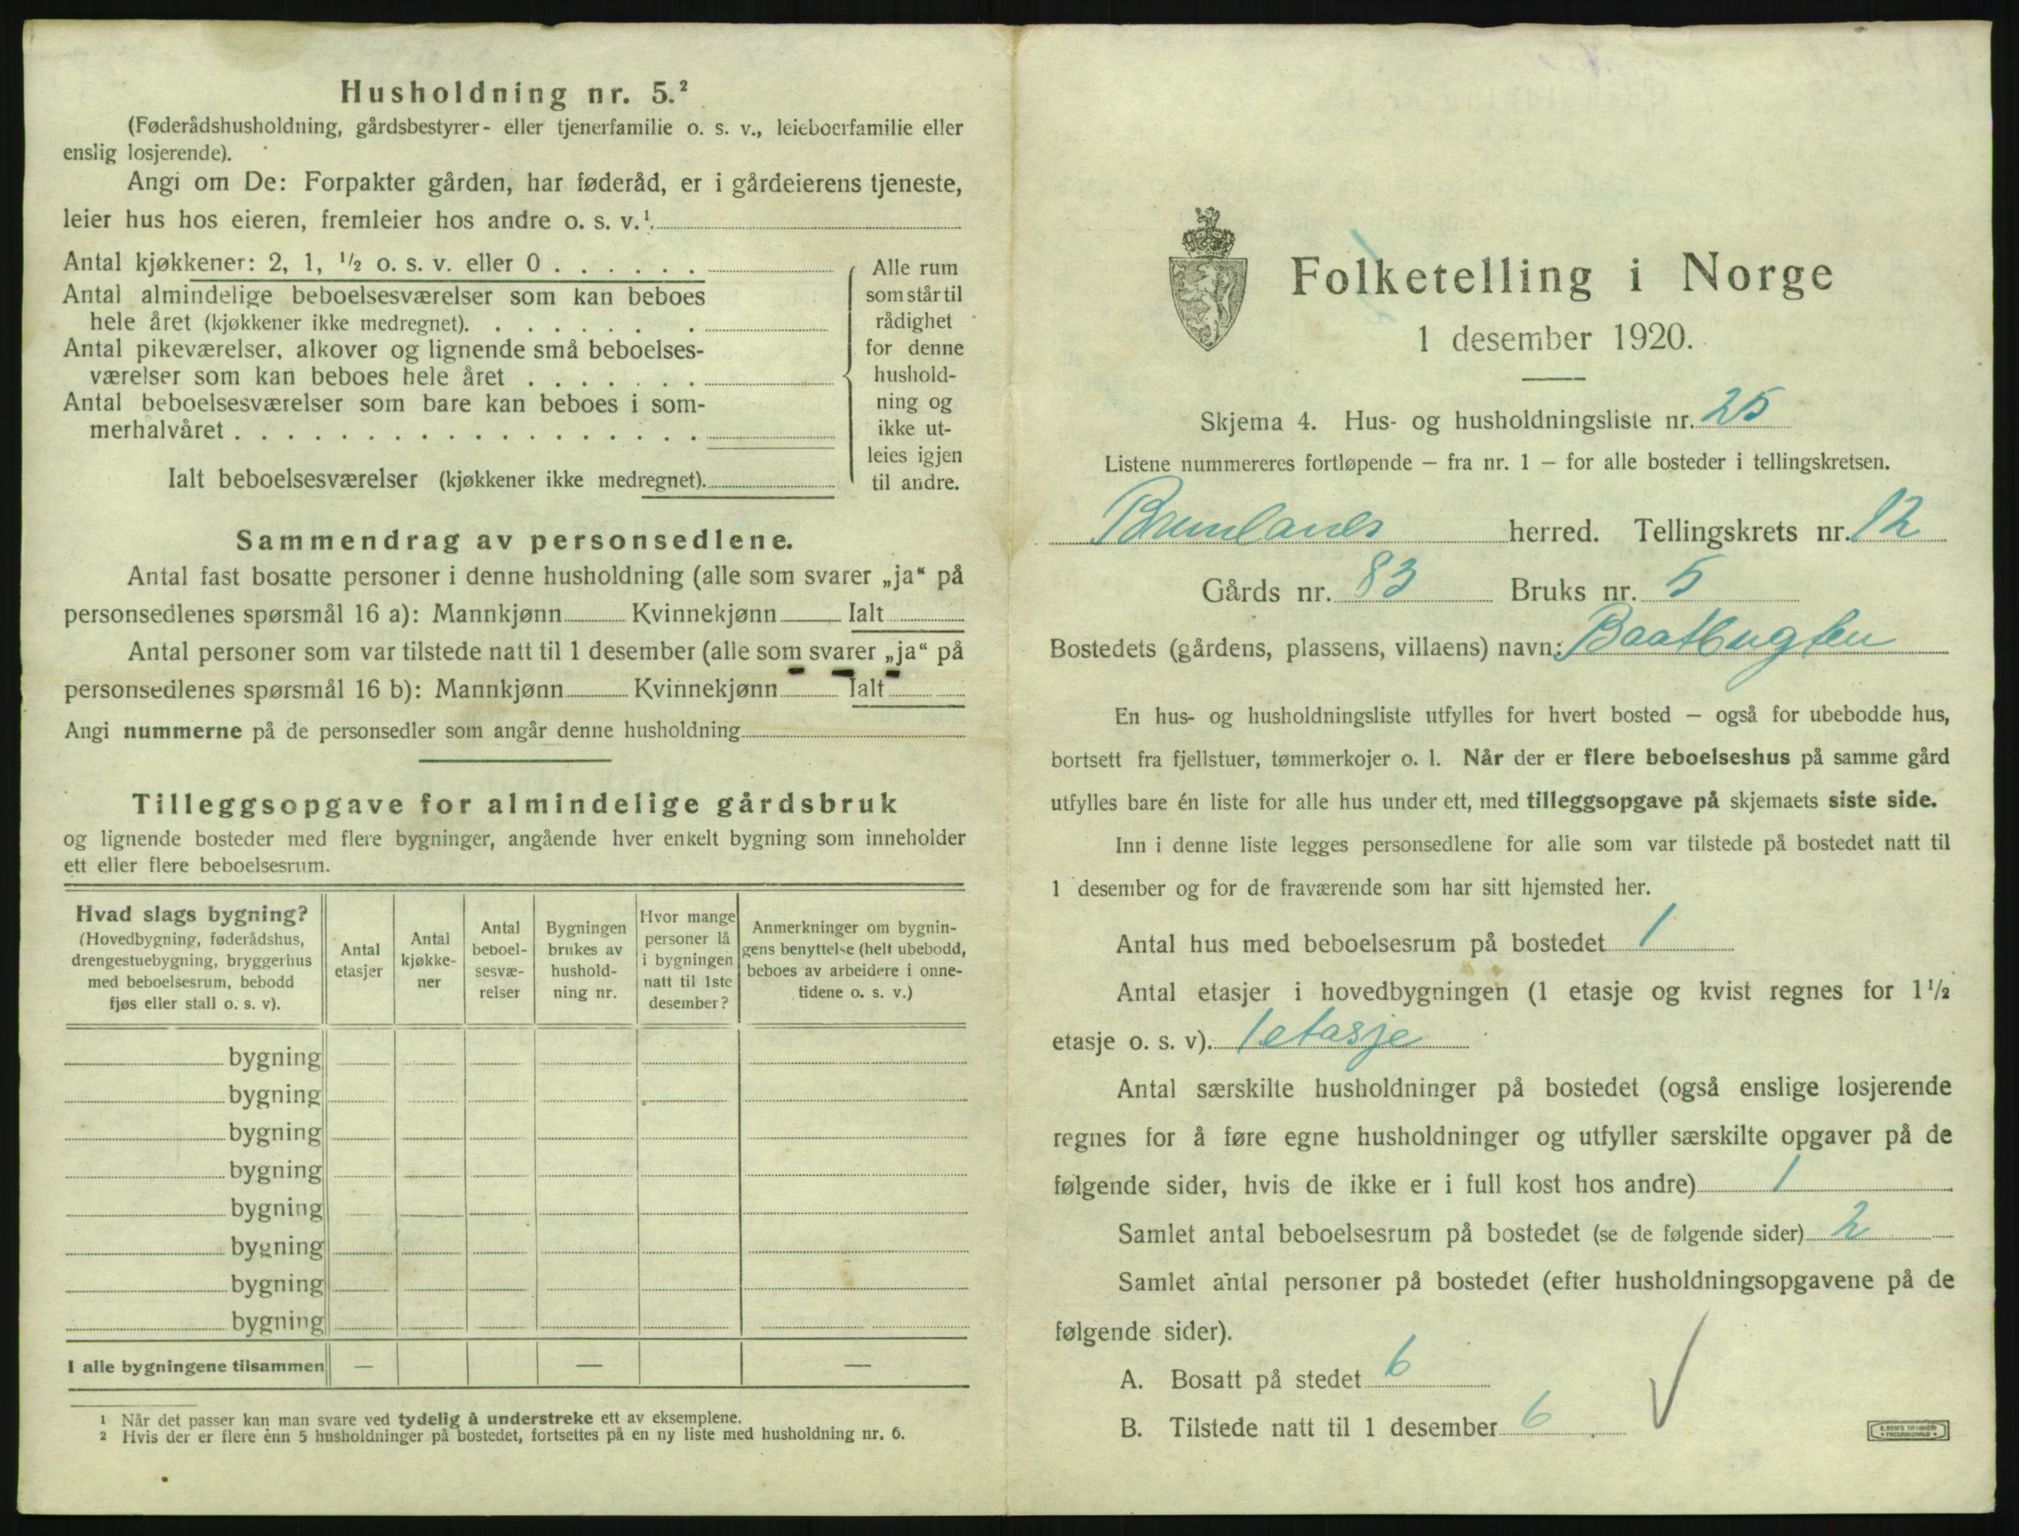 Husholdning nr. 5.²
(Føderådshusholdning, gårdsbestyrer- eller tjenerfamilie o. s. v., leieboerfamilie eller
enslig losjerende).
Angi om De: Forpakter gården, har føderåd, er i gårdeierens tjeneste,
leier hus hos eieren, fremleier hos andre o. s. v.¹
Antal kjøkkener: 2, 1, ½ o. s. v. eller 0 . . . . . .
Antal almindelige beboelsesværelser som kan beboes
hele året (kjøkkener ikke medregnet). . . . . . . .
Antal pikeværelser, alkover og lignende små beboelses-
værelser som kan beboes hele året . . . . . . .
Antal beboelsesværelser som bare kan beboes i som-
merhalvåret . . . . . . . . . . . . . . . . . .
Ialt beboelsesværelser (kjøkkener ikke medregnet).
Alle rum
som står til
rådighet
for denne
hushold-
ning og
ikke ut-
leies igjen
til andre.
Sammendrag av personsedlene.
Antal fast bosatte personer i denne husholdning (alle som svarer „ja“ på
personsedlenes spørsmål 16 a): Mannkjønn Kvinnekjønn Ialt
Antal personer som var tilstede natt til 1 desember (alle som svarer „ja“ på
personsedlenes spørsmål 16 b): Mannkjønn Kvinnekjønn Ialt
Angi nummerne på de personsedler som angår denne husholdning
Tilleggsopgave for almindelige gårdsbruk
og lignende bosteder med flere bygninger, angående hver enkelt bygning som inneholder
ett eller flere beboelsesrum.
Hvad slags bygning?
(Hovedbygning, føderådshus,
drengestuebygning, bryggerhus
med beboelsesrum, bebodd
fjøs eller stall o. s. v).
Antal
etasjer
Antal
kjøkke-
ner
Antal
beboel-
sesvæ-
relser
Bygningen
brukes av
hushold-
ning nr.
Hvor mange
personer lå
i bygningen
natt til 1ste
desember?
Anmerkninger om bygnin-
gens benyttelse (helt ubebodd,
beboes av arbeidere i onne-
tidene o. s. v.)
bygning
bygning
bygning
bygning
bygning
bygning
bygning
bygning
I alle bygningene tilsammen — — —
1 Når det passer kan man svare ved tydelig å understreke ett av eksemplene.
2 Hvis der er flere enn 5 husholdninger på bostedet, fortsettes på en ny liste med husholdning nr. 6.
Folketelling i Norge
1 desember 1920.
Skjema 4. Hus- og husholdningsliste nr. 25
Listene nummereres fortløpende – fra nr. 1 – for alle bosteder i tellingskretsen.
Brunlanes herred. Tellingskrets nr. 12
Gårds nr. 83 Bruks nr. 5
Bostedets (gårdens, plassens, villaens) navn:
En hus- og husholdningsliste utfylles for hvert bosted – også for ubebodde hus,
bortsett fra fjellstuer, tømmerkojer o. l. Når der er flere beboelseshus på samme gård
utfylles bare én liste for alle hus under ett, med tilleggsopgave på skjemaets siste side.
Inn i denne liste legges personsedlene for alle som var tilstede på bostedet natt til
1 desember og for de fraværende som har sitt hjemsted her.
Antal hus med beboelsesrum på bostedet 1
Antal etasjer i hovedbygningen (1 etasje og kvist regnes for 1½
etasje o. s. v). 1 etasje
Antal særskilte husholdninger på bostedet (også enslige losjerende
regnes for å føre egne husholdninger og utfyller særskilte opgaver på de
følgende sider, hvis de ikke er i full kost hos andre) 1
Samlet antal beboelsesrum på bostedet (se de følgende sider) 2
Samlet antal personer på bostedet (efter husholdningsopgavene på de
følgende sider).
A. Bosatt på stedet 6
B. Tilstede natt til 1 desember 6